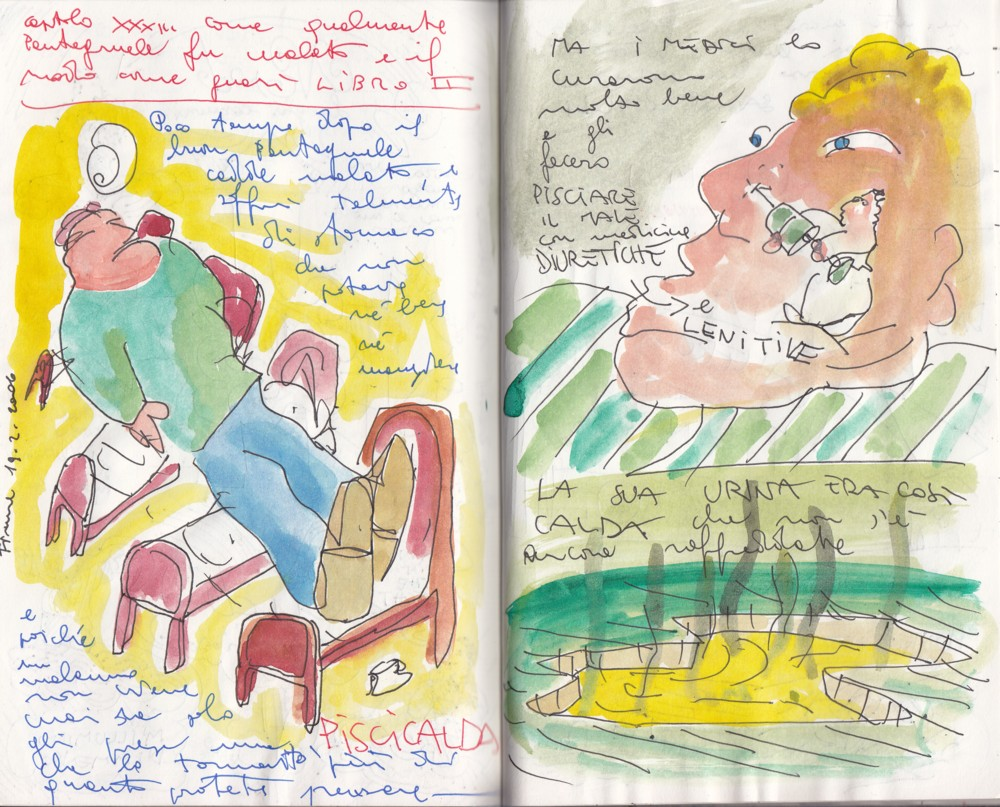 come qualmente
Pantagruele fu malato e il
modo come guarì LIBRO II
Poco tempo dopo il
buon Pantagruele
cadde malato, e
soffrì talmente
di stomaco
che non
poteva
né bere
né
mangiare
19.2.2006
e
poiché
un
malanno
non viene
mai da solo
gli prese una
che lo tormentò più di
quanto potete pensare
PISCICALDA
MA i MEDICI lo
curarono
molto bene
e gli
fecero
PISCIARE
IL MALE
con medicine
DIURETICHE
e
LENITIVE
LA SUA URINA ERA COSÌ
CALDA che non s'è
ancora raffreddata